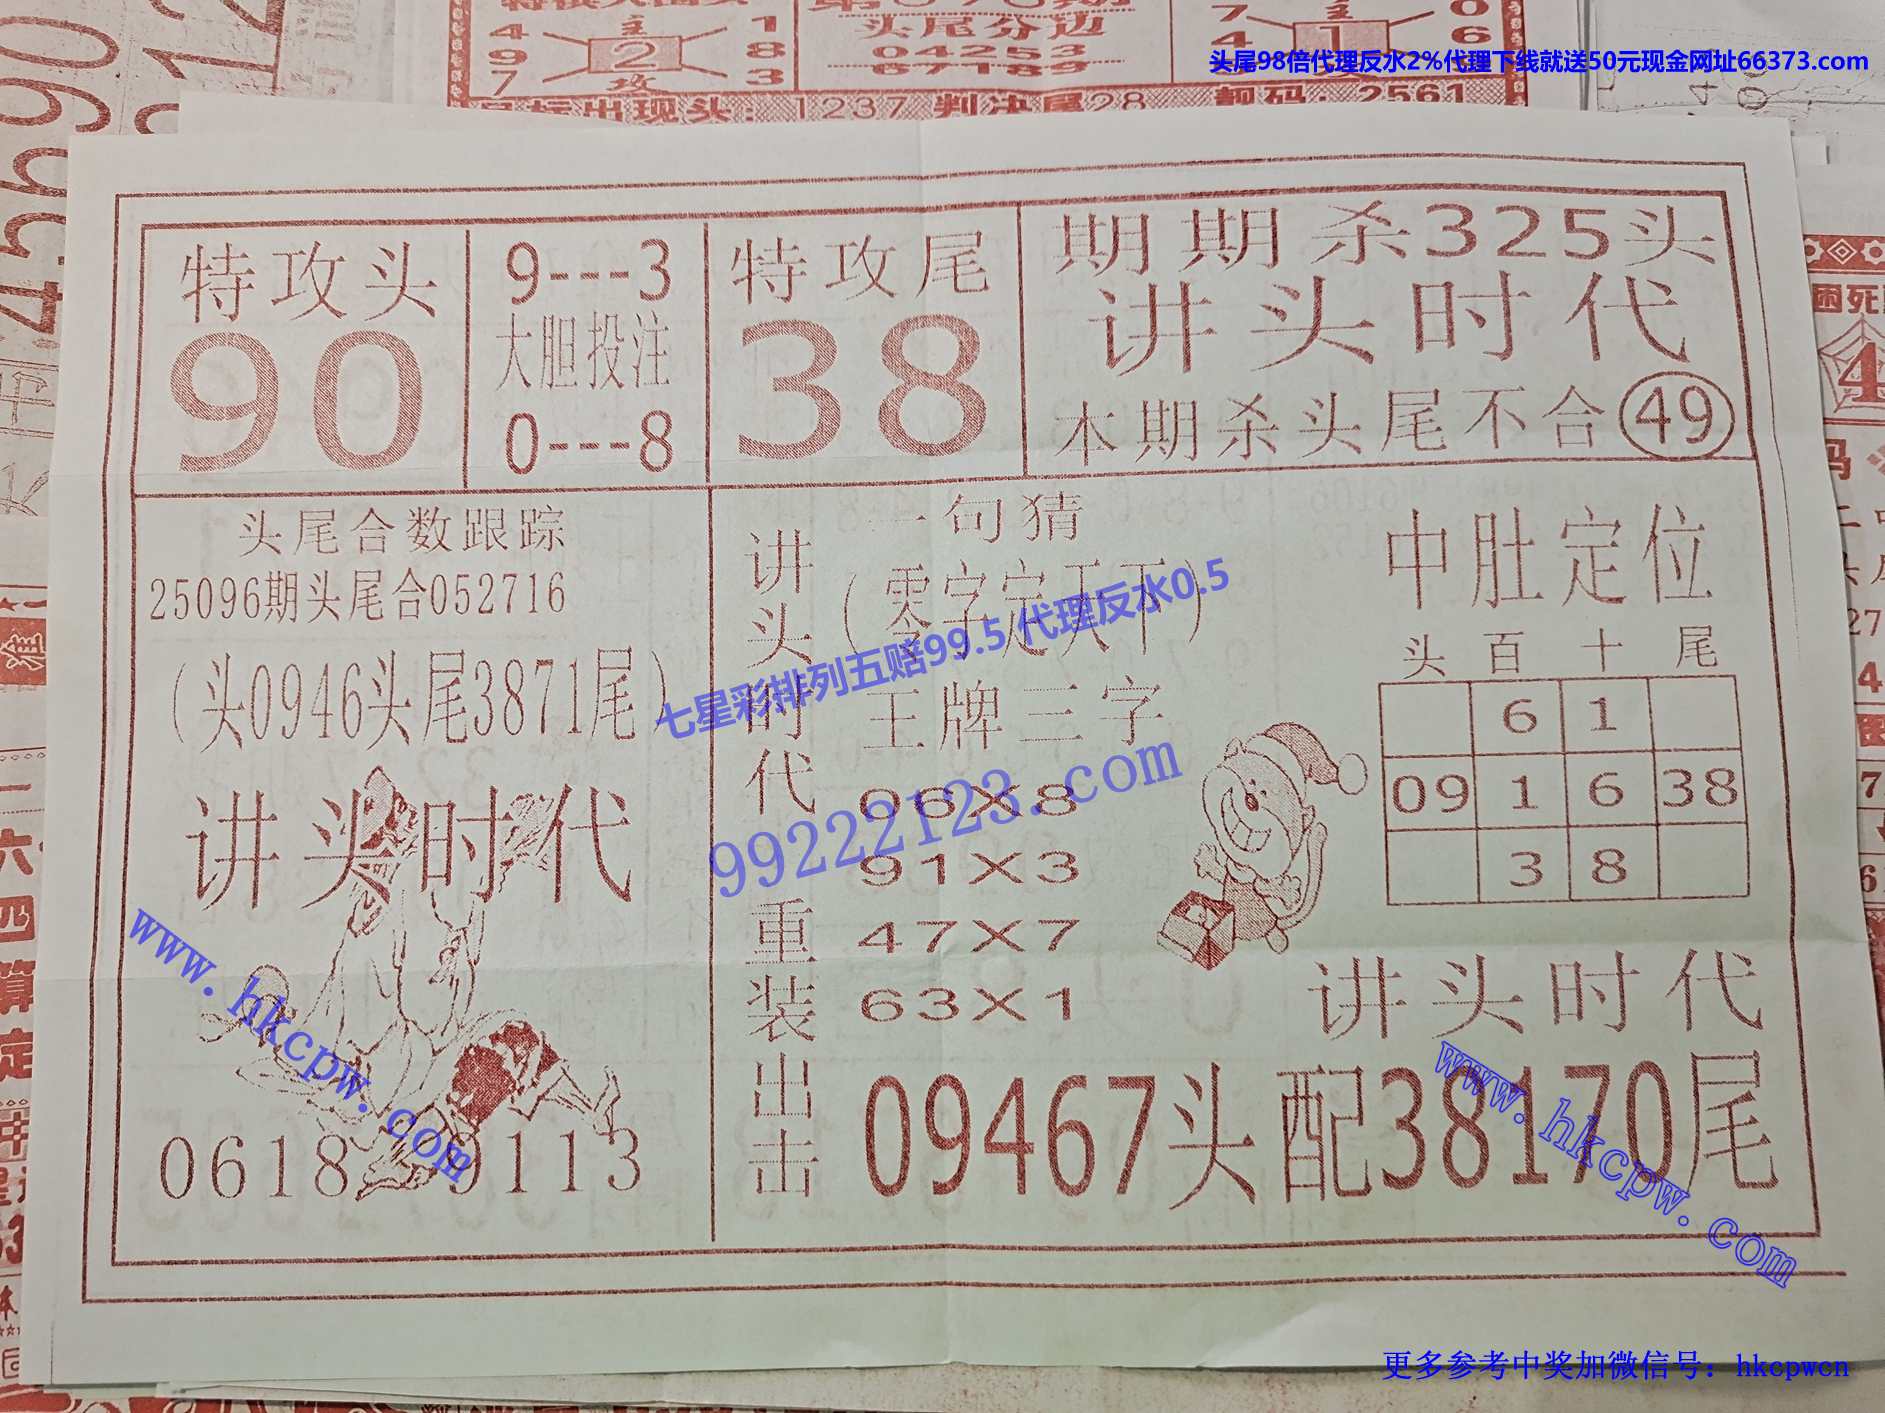 4 主 1
9 2 8
7 攻 3
头尾分边
04253
67189
7 主 0
4 1 6
头尾98倍代理反水2%代理下线就送50元现金网址66373.com
目标出现头：1237 判决尾28 靓码：2561
特攻头
90
9---3
大胆投注
0---8
特攻尾
38
期期杀325头
讲头时代
本期杀头尾不合49
头尾合数跟踪
25096期头尾合052716
（头0946头尾3871尾）
讲头时代
www.hkcpw.com
0618 9113
讲头时代重装出击
一句猜
（零字定天下）
王牌三字
96X8
91X3
47X7
63X1
七星彩排列五赔99.5 代理反水0.5
99222123.com
中肚定位
头 百 十 尾
6 1
09 1 6 38
3 8
讲头时代
09467头配38170尾
www.hkcpw.com
更多参考中奖加微信号：hkcpwcn